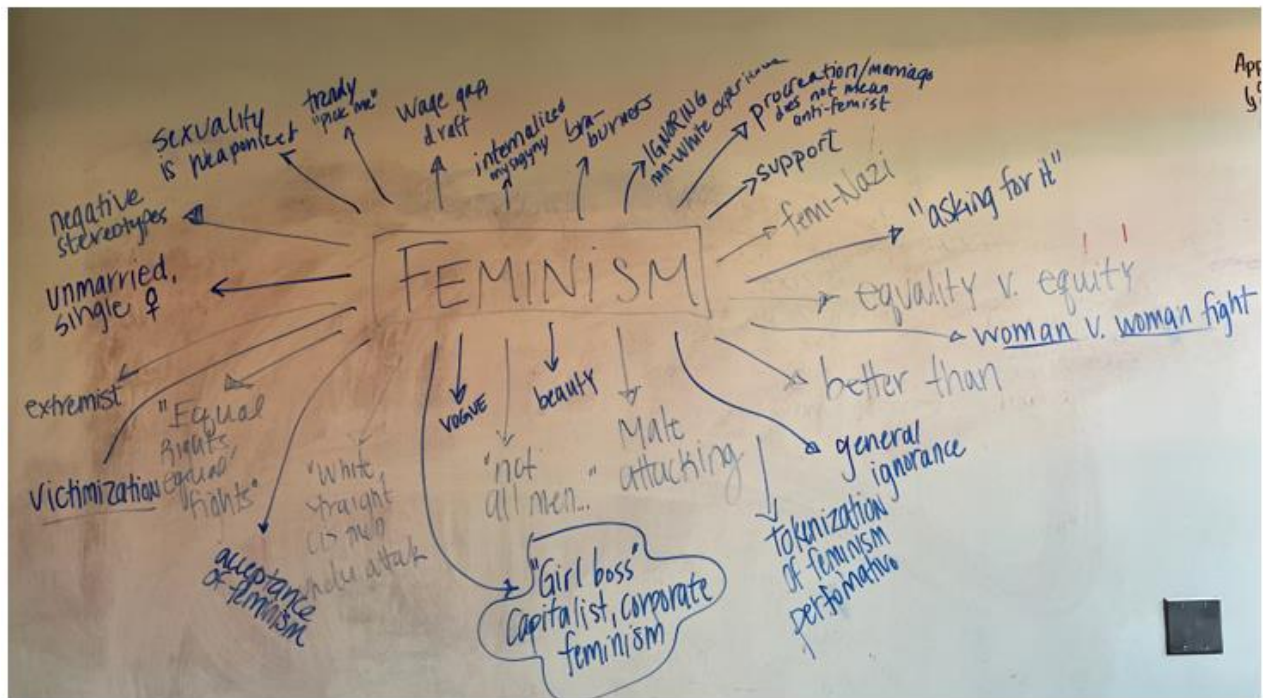 sexuality
is weaponized
trendy
"pick me"
wage gap
draft
internalized
mysogyny
bra-
burners
IGNORING
non-white experience
procreation/marriage
does not mean
anti-femist
support
femi-Nazi
"asking for it"
equality v. equity
woman v. woman fight
better than
general
ignorance
tokenization
of feminism
perfomative
Male
attacking
beauty
"not
all men..."
VOGUE
"Girl boss"
Capitalist, corporate
feminism
"White,
straight
cis men
attack
acceptance
of feminism
"Equal
Rights,
Equal
Fights"
victimization
extremist
unmarried,
single ♀
negative
stereotypes
FEMINISM
App